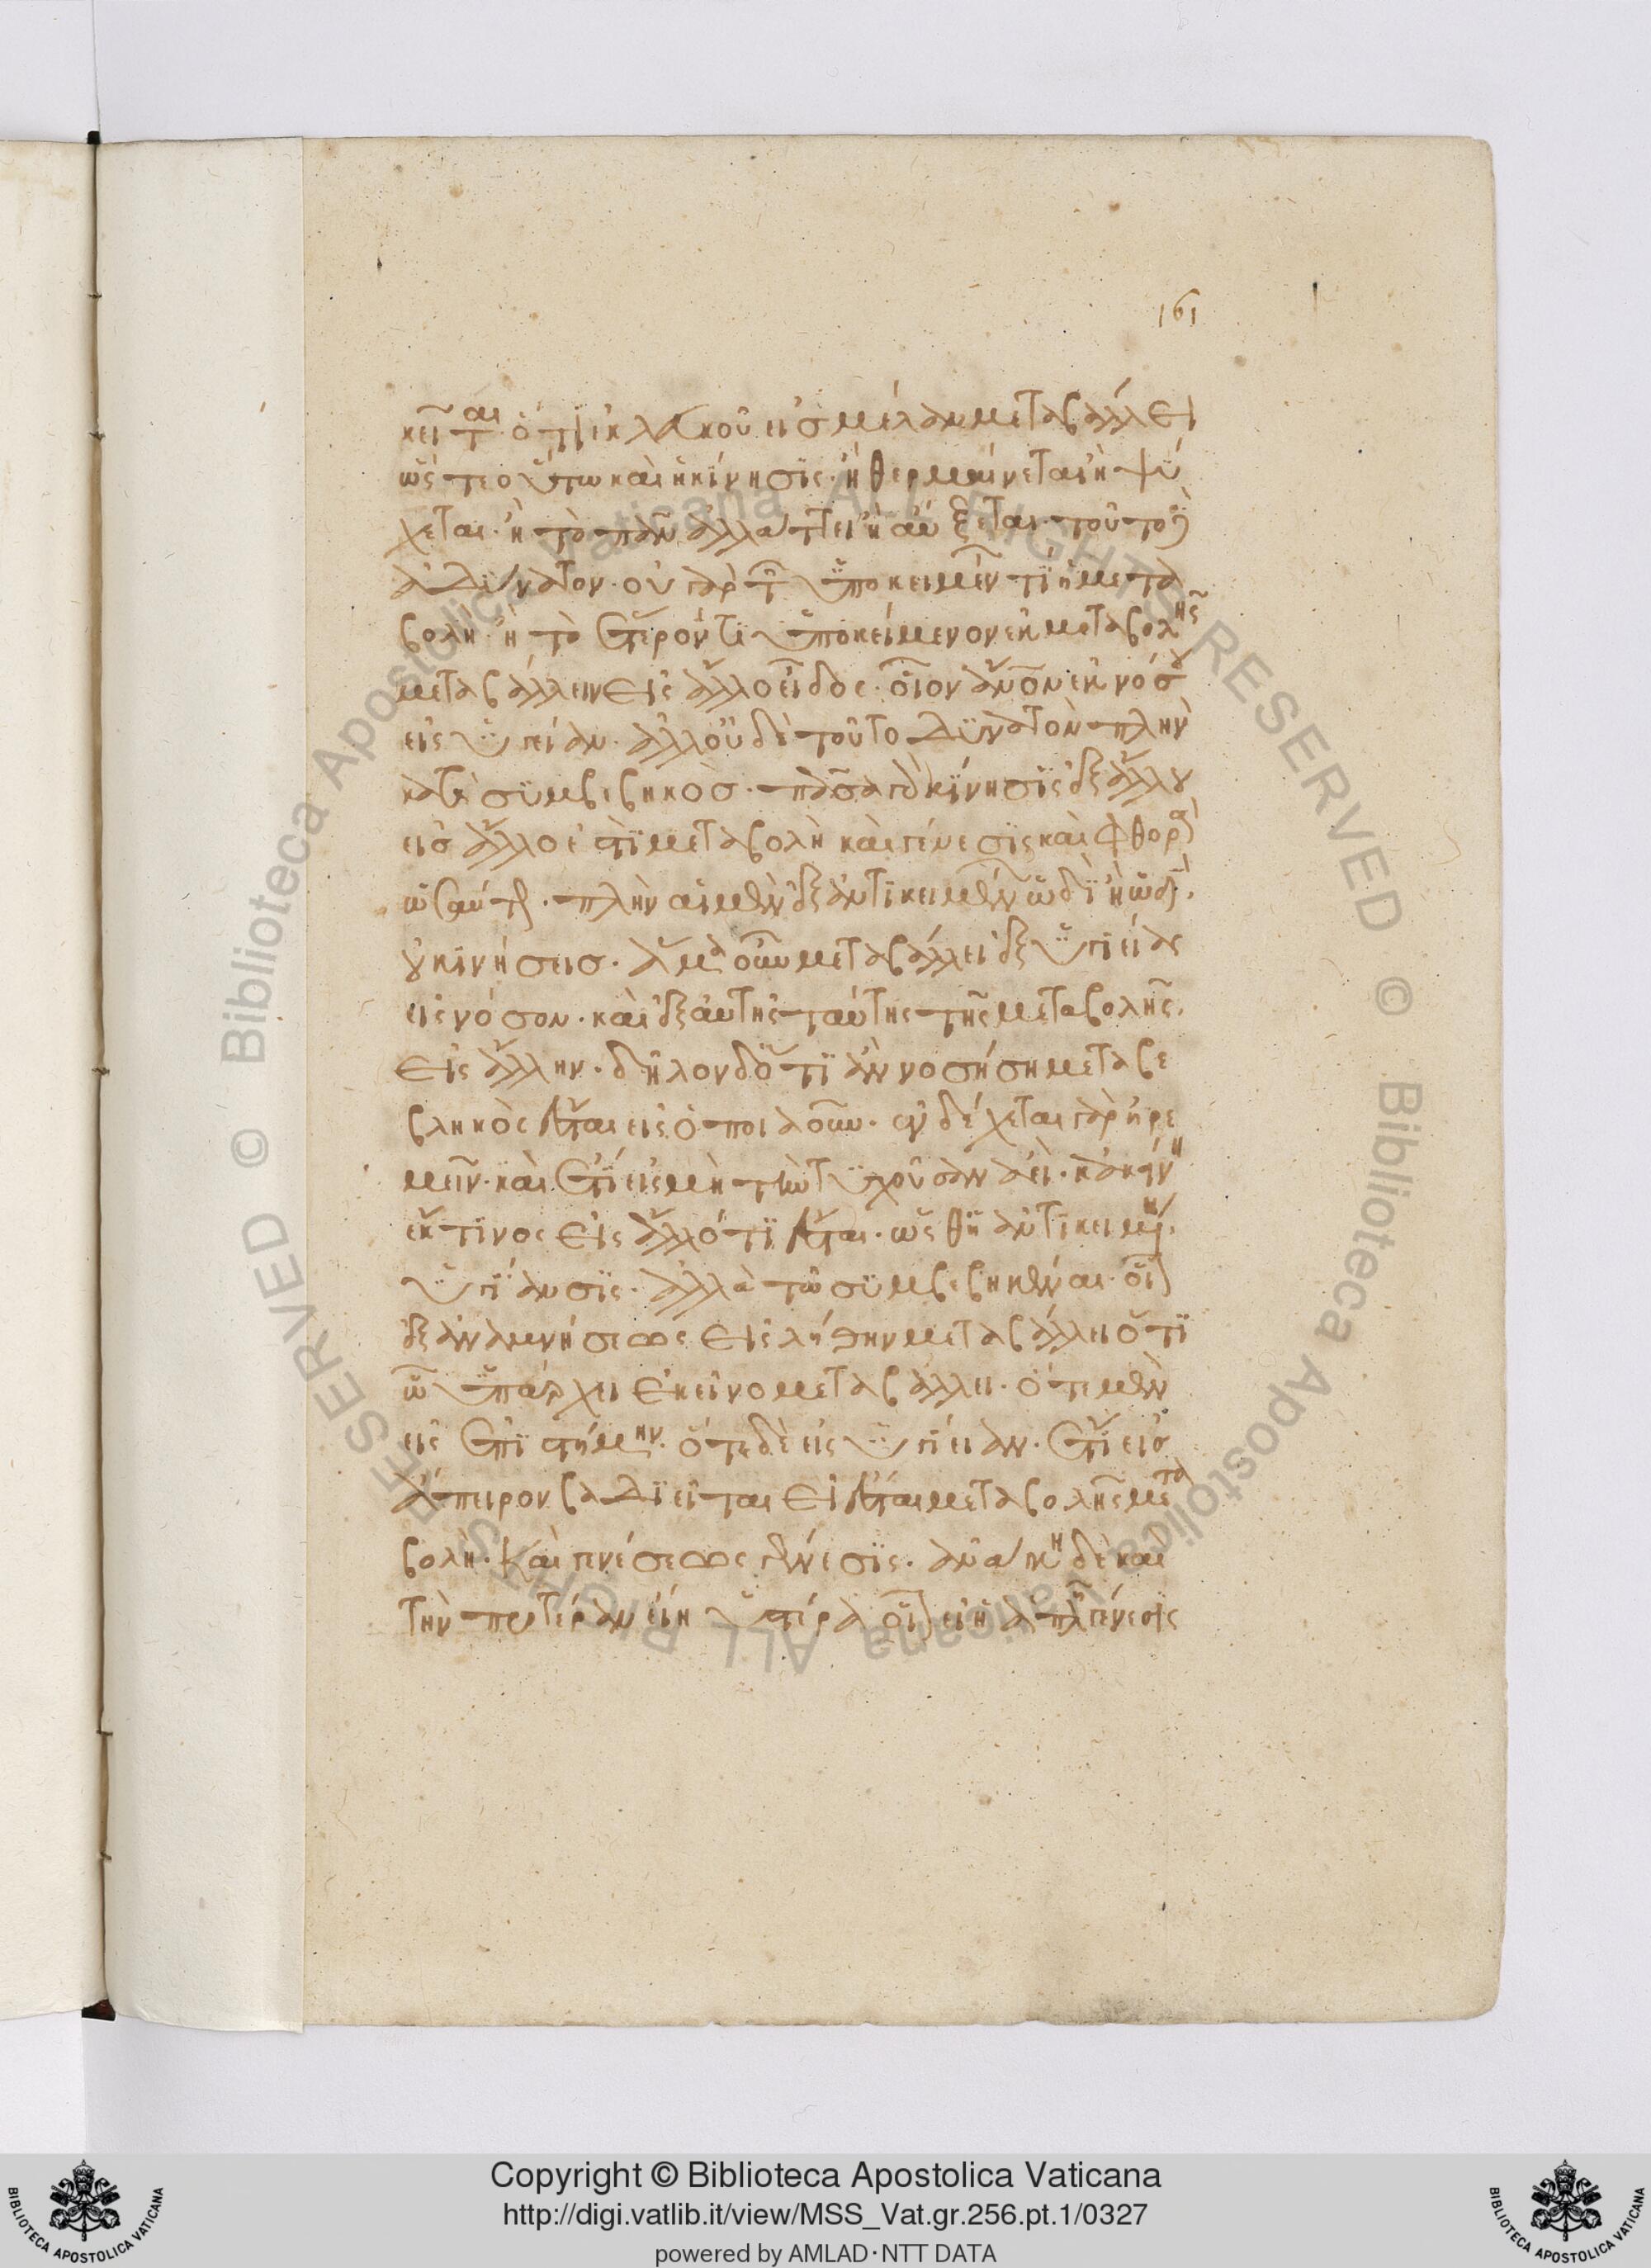 κεῖται· ὅτι ἐκ λευκοῦ εἰς μέλαν μεταβάλλει
ὥστε οὕτω καὶ ἡ κίνησις· ἢ θερμαίνεται ἢ ψύ
χεται· ἢ τόπον ἀλλάττει ἢ αὔξεται· τοῦτο δὲ
ἀδύνατον· οὐ γὰρ τῶν ὑποκειμένων τι ἡ μετα
βολή· ἢ τὸ ἕτερόν τι ὑποκείμενον ἐκ μεταβολῆς
μεταβάλλειν εἰς ἄλλο εἶδος· οἷον ἄνον ἐκ νόσου
εἰς ὑγείαν· ἀλλ οὐδὲ τοῦτο δυνατὸν πλὴν
κατὰ συμβεβηκός· πᾶσα γὰρ κίνησις ἐξ ἄλλου
εἰς ἄλλο ἐστὶ μεταβολὴ καὶ γένεσις καὶ φθορὰ
ὡσαύτως· πλὴν αἱ μὲν ἐξ ἀντικειμένων ὡδὶ ἢ ὡδί·
οὐ κινήσεις· ἅμα οὖν μεταβάλλει ἐξ ὑγιείας
εἰς νόσον· καὶ ἐξ αὐτῆς ταύτης τῆς μεταβολῆς·
εἰς ἄλλην· δῆλον δ ὅτι ἂν νοσήσῃ μεταβε
βληκὸς ἔσται εἰς ὁποιαοῦν· ἐνδέχεται γὰρ ἠρε
μεῖν· καὶ ἔτι εἰς μὴ τὴν τυχοῦσαν ἀεί· κἀκείνη
ἔκ τινος εἰς ἄλλό τι ἔσται· ὥσθ ἡ ἀντικειμένη·
ὑγίανσις· ἀλλὰ τῶ συμβεβηκέναι· οἷον
ἐξ ἀναμνήσεως εἰς λήθην μεταβάλλει ὅτι
ᾧ ὑπάρχει ἐκεῖνο μεταβάλλει· ὁτὲ μὲν
εἰς ἐπιστήμην· ὁτὲ δὲ εἰς ὑγίειαν· ἔτι εἰς
ἄπειρον βαδιεῖται εἰ ἔσται μεταβολῆς μετα
βολή· καὶ γενέσεως γένεσις· ἀνάγκη δὲ καὶ
τὴν προτέραν εἴη ὑστέρα οἷον εἰ ἡ ἁπλῆ γένεσις
161
Copyright © Biblioteca Apostolica Vaticana
http://digi.vatlib.it/view/MSS_Vat.gr.256.pt.1/0327
powered by AMLAD·NTT DATA